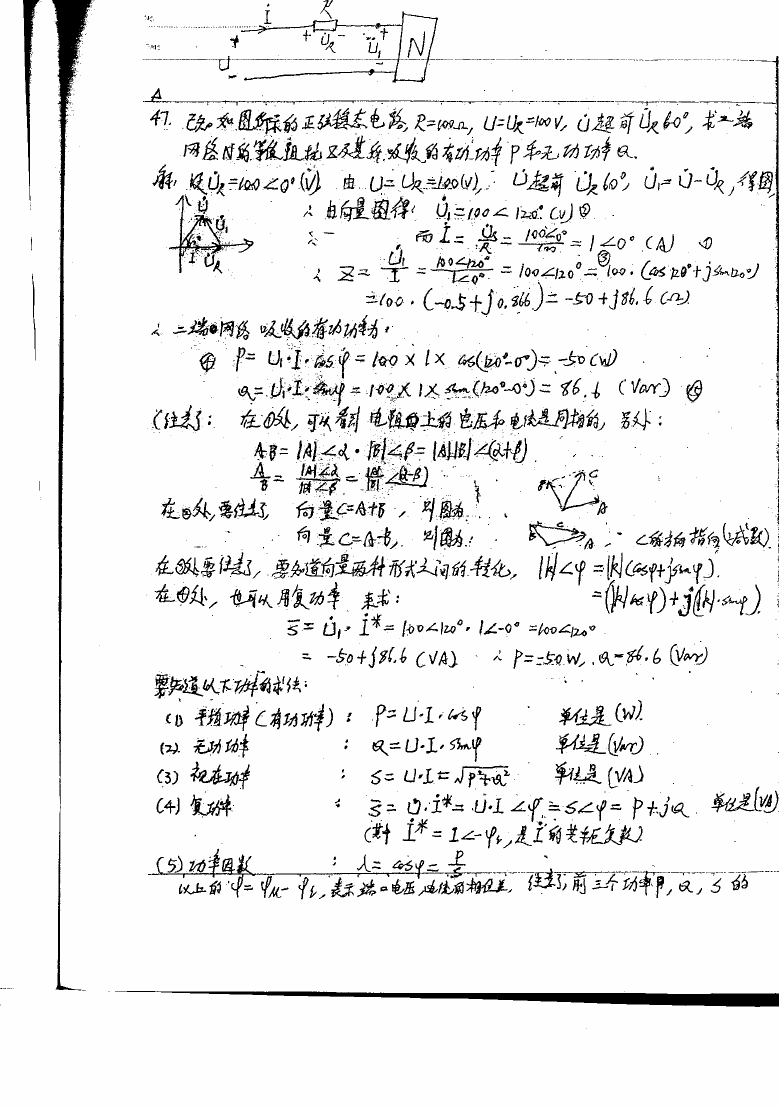 İ R
+ U̇R - + U̇₁ - N
U + -
47. 已知如图所示的正弦稳态电路, R=100Ω, U=UR=100V, U̇超前U̇R 60°, 求二端
网络N的等值阻抗Z及其所吸收的有功功率P和无功功率Q.
解: 设U̇R=100∠0°(V) 由U=UR=100(V), U̇超前U̇R 60°, U̇₁=U̇-U̇R, 得图
∴ 由向量图得: U̇₁=100∠120°(V) ②
而 İ = U̇R/R = 100∠0°/100 = 1∠0° (A) ①
∴ Z = U̇₁/İ = 100∠120°/1∠0° = 100∠120° =③ 100·(cos120°+jsin120°)
=100·(-0.5+j0.866)=-50+j86.6(Ω)
∴ 二端网络吸收的有功功率为:
④ P=U₁·I·cosφ=100×1×cos(120°-0°)=-50(W)
Q=U₁·I·sinφ=100×1×sin(120°-0°)=86.6 (Var) ⑤
(注意: 在①处, 可以看到电阻上的电压和电流是同相的, 另外:
A·B=|A|∠α·|B|∠β=|A||B|∠(α+β)
A/B = |A|∠α/|B|∠β = |A|/|B| ∠(α-β)
在②处, 要注意 向量C=A+B, 则图为: B C A
向量C=A-B, 则图为: C A
∠的方向指向(被减数)
在③处要注意, 要知道向量两种形式之间的转化, |k|∠φ=|k|(cosφ+jsinφ)
=(|k|cosφ)+j(|k|·sinφ)
在④处, 也可以用复功率来求:
S̄=U̇₁·İ*=100∠120°·1∠-0°=100∠120°
= -50+j86.6 (VA) ∴ P=-50W, Q=86.6 (Var)
要知道以下功率的求法:
(1) 平均功率(有功功率): P=U·I·cosφ 单位是(W)
(2) 无功功率 : Q=U·I·sinφ 单位是(Var)
(3) 视在功率 : S=U·I=√P²+Q² 单位是(VA)
(4) 复功率 : S̄=U̇·İ*=U·I∠φ=S∠φ=P+jQ 单位是(VA)
(其中 İ*=I∠-φi, 是İ的共轭复数)
(5) 功率因数 : λ=cosφ=P/S
以上的φ=φu-φi, 表示端口电压, 电流的相位差, 注意, 前三个功率P, Q, S的